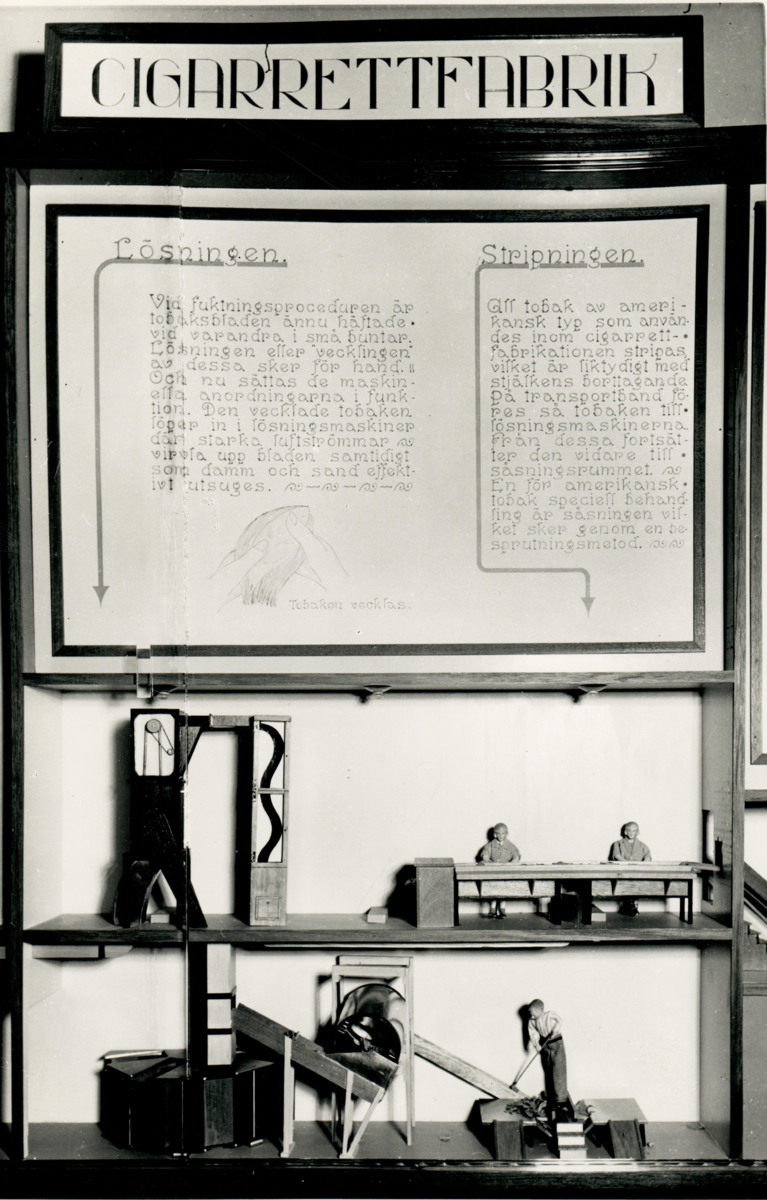 CIGARRETTFABRIK
Lösningen.
Vid fuktningsproceduren är
tobaksbladen ännu häftade
vid varandra i små buntar.
Lösningen eller vecklingen
av dessa sker för hand.
Och nu sättas de maskin-
ella anordningarna i funk-
tion. Den vecklade tobaken
löper in i lösningsmaskiner
där starka luftströmmar
virvla upp bladen samtidigt
som damm och sand effekt-
ivt utsuges.
Tobaken vecklas.
Stripningen.
All tobak av ameri-
kansk typ som använ-
des inom cigarrett-
fabrikationen stripas
vilket är liktydigt med
stjälkens borttagande.
På transportband fö-
res så tobaken till
lösningsmaskinerna.
Från dessa fortsät-
ter den vidare till
såsningsrummet.
En för amerikansk
tobak speciell behand-
ling är såsningen vil-
ket sker genom en be-
sprutningsmetod.